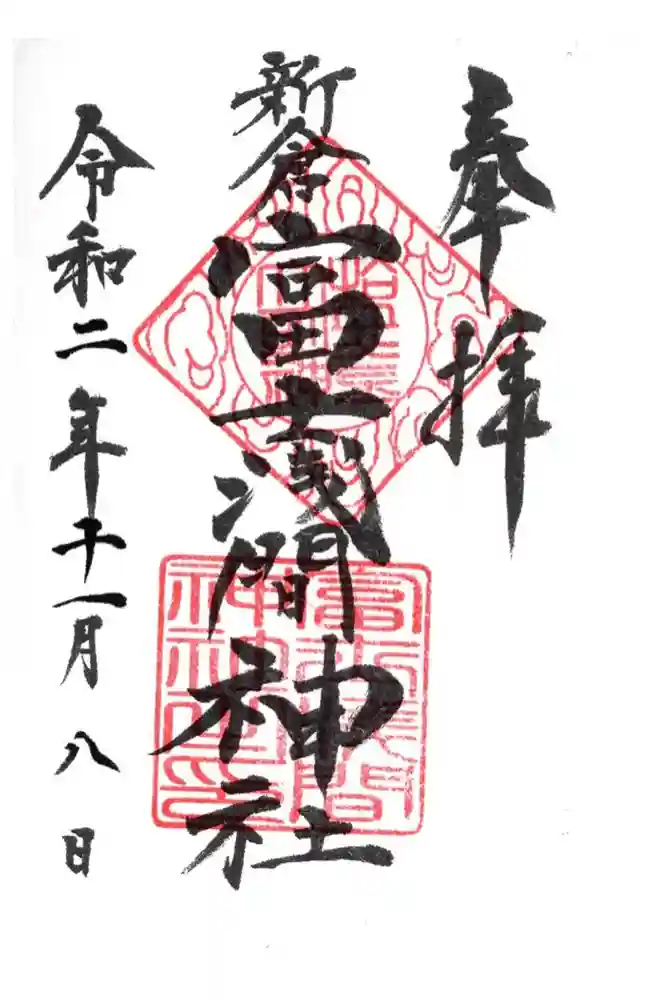 奉拝
新倉
富士浅間神社
令和二年十一月八日
冨士浅間
神社之印